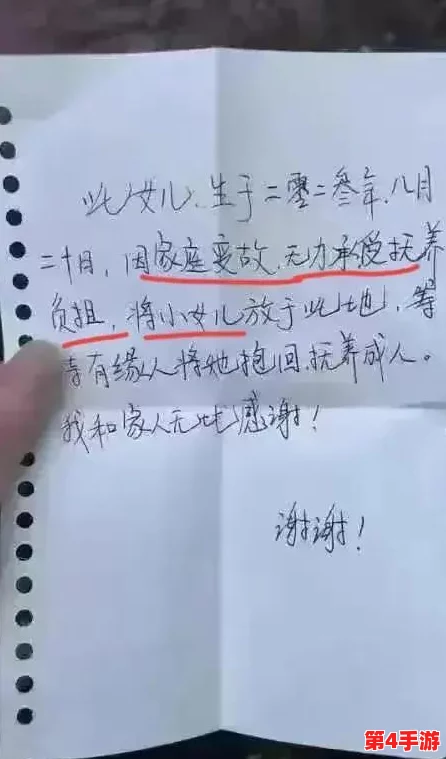 此女儿、生于二零二叁年、八月
二十日，因家庭变故、无力承受抚养
负担，将小女儿放于此地，等
待有缘人将她抱回、抚养成人。
我和家人无比感谢！
谢谢！
第4手游